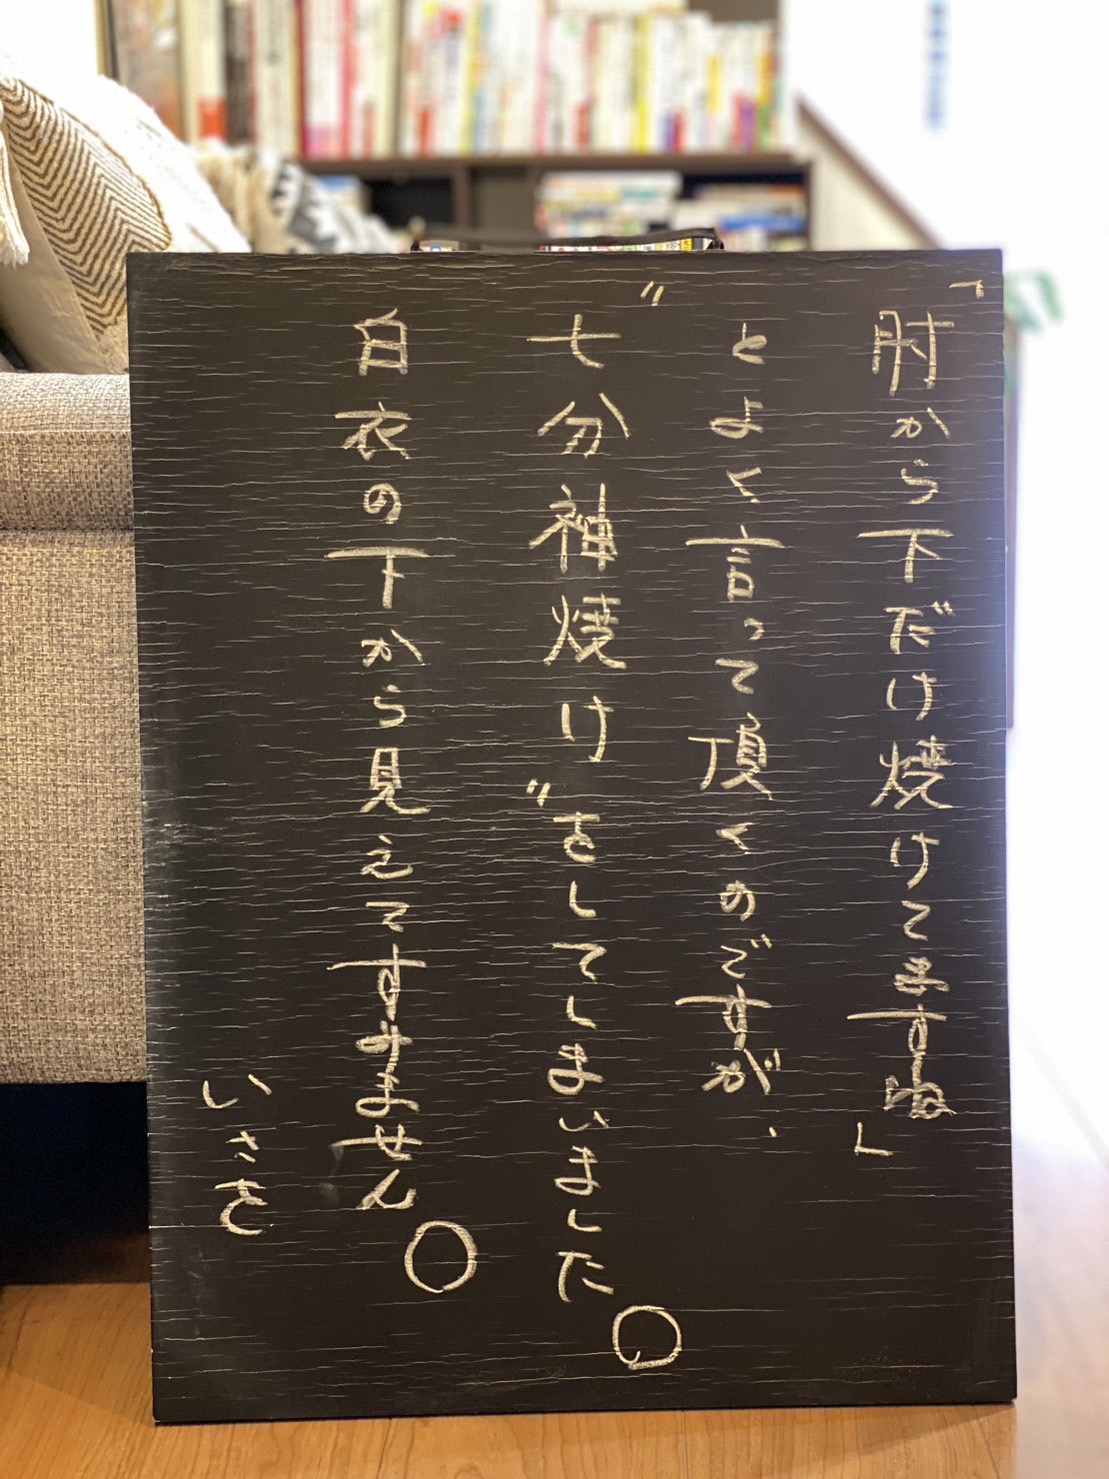 「肘から下だけ焼けてますね」
とよく言って頂くのですが、
"七分神焼け"をしてしまいました。
白衣の下から見えてすみません。
いさを